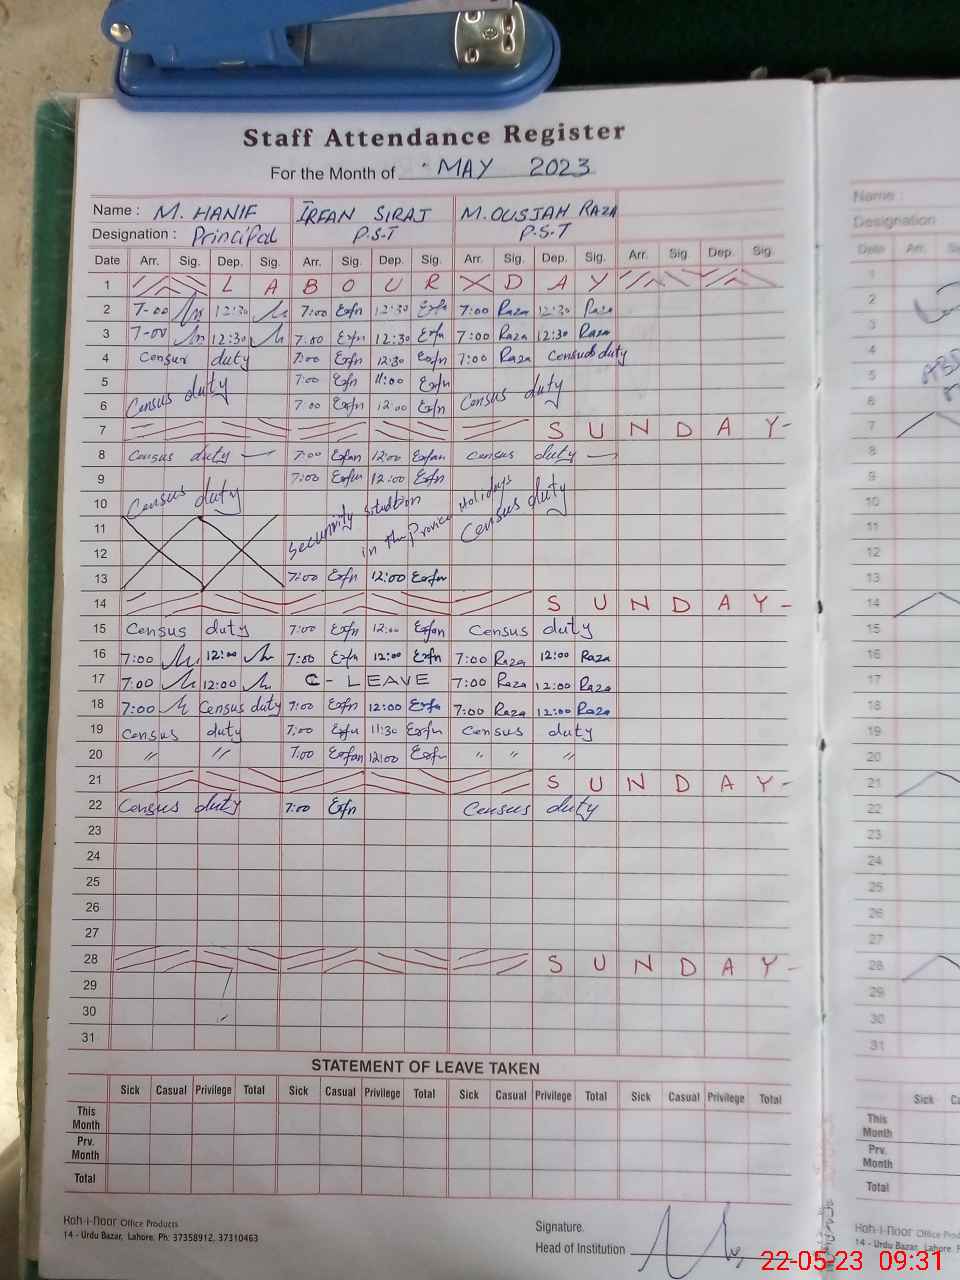 Staff Attendance Register
For the Month of MAY 2023
Name : M. HANIF IRFAN SIRAJ M. OUSJAH RAZA
Designation : Principal P.S.T P.S.T
Date Arr. Sig. Dep. Sig. Arr. Sig. Dep. Sig. Arr. Sig. Dep. Sig. Arr. Sig. Dep. Sig.
1 L A B O U R D A Y
2 7-00 12:30 7:00 Erfn 12:30 Erfn 7:00 Raza 12:30 Raza
3 7-00 12:30 7:00 Erfn 12:30 Erfn 7:00 Raza 12:30 Raza
4 Census duty 7:00 Erfn 12:30 Erfn 7:00 Raza Census duty
5 7:00 Erfn 11:00 Erfn
6 Census duty 7:00 Erfn 12:00 Erfn Census duty
7 S U N D A Y -
8 Census duty 7:00 Erfan 12:00 Erfan Census duty
9 7:00 Erfn 12:00 Erfn
10 Census duty Security situation in the Province Holidays Census duty
11
12
13 7:00 Erfn 12:00 Erfn
14 S U N D A Y -
15 Census duty 7:00 Erfn 12:00 Erfan Census duty
16 7:00 12:00 7:00 Erfn 12:00 Erfn 7:00 Raza 12:00 Raza
17 7:00 12:00 C - LEAVE 7:00 Raza 12:00 Raza
18 7:00 Census duty 7:00 Erfn 12:00 Erfn 7:00 Raza 12:00 Raza
19 Census duty 7:00 Erfn 11:30 Erfn Census duty
20 〃 〃 7:00 Erfan 12:00 Erfn 〃 〃 〃
21 S U N D A Y -
22 Census duty 7:00 Erfn Census duty
23
24
25
26
27
28 S U N D A Y -
29
30
31
STATEMENT OF LEAVE TAKEN
Sick Casual Privilege Total Sick Casual Privilege Total Sick Casual Privilege Total Sick Casual Privilege Total
This Month
Prv. Month
Total
Koh-i-Noor Office Products
14 - Urdu Bazar, Lahore. Ph: 37358912, 37310463
Signature.
Head of Institution
Name :
Designation
Date Arr.
1
2
3
4
5
6
7
8
9
10
11
12
13
14
15
16
17
18
19
20
21
22
23
24
25
26
27
28
29
30
31
Sick
This Month
Prv. Month
Total
Koh-i-Noor Office
14 - Urdu Bazar, Lahore.
22-05-23 09:31